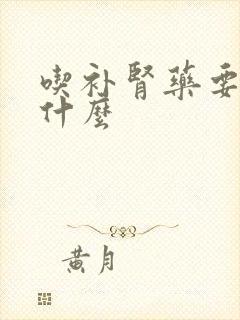 喫补腎藥要
什麼
黄月